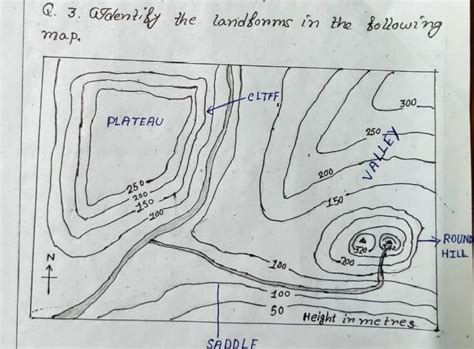 Q. 3. Identify the landforms in the following
map.
CLIFF
PLATEAU
300
250
VALLEY
200
150
250
200
150
100
ROUND
HILL
320
200
N
100
100
50
Height in metres
SADDLE